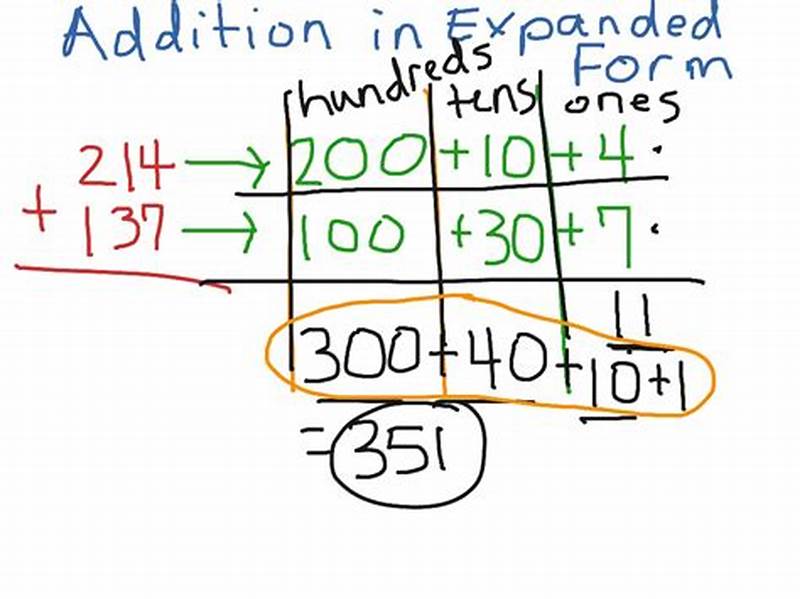 Addition in Expanded
Form
hundreds tens ones
214 → 200 +10 +4
+ 137 → 100 +30 +7
11
300+40+10+1
=351